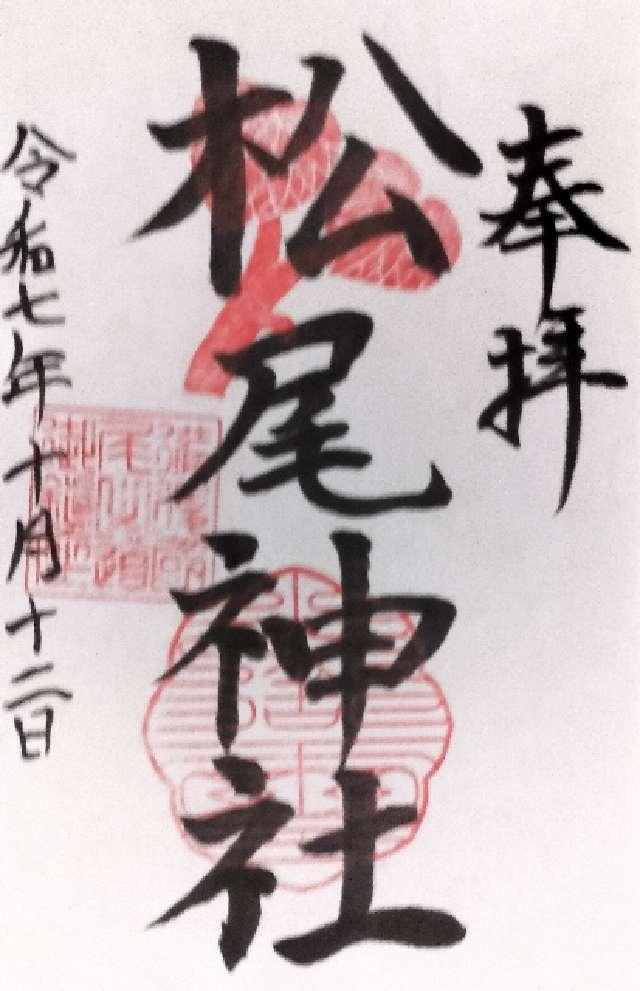 奉拝
松尾神社
令和七年十月十二日